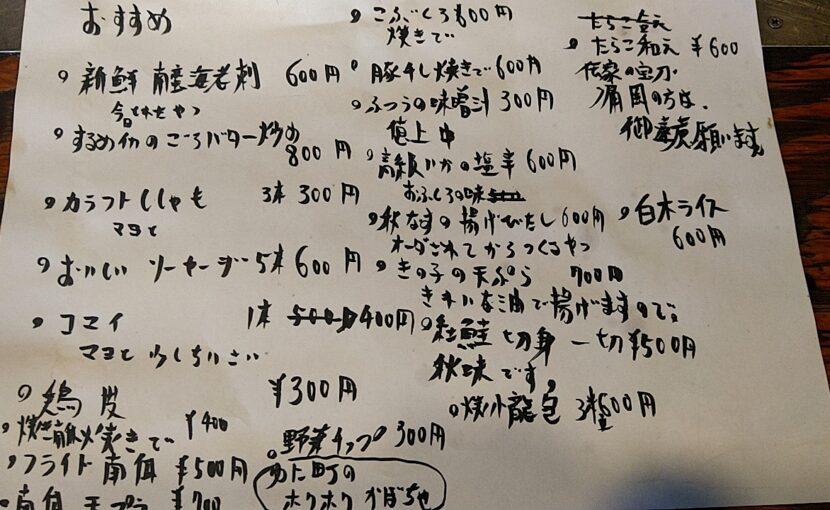 おすすめ
新鮮 南蛮海老刺 600円
今日とれたやつ
するめイカのごろバター炒め
800円
カラフトししゃも 3本 300円
マヨと
おいしい ソーセージ 5本 600円
コマイ 1本 500円 400円
マヨと 少しちいさい
鶏皮 ¥300円
焼きで ¥400
フライト 南 ¥500円
南 天プラ ¥700
こぶくろ 600円
焼きで
豚 し焼きで 600円
ふつうの味噌汁 300円
値上中
高級いかの塩辛 600円
おふくろの味
秋なすの揚げびたし 600円
オーダされてからつくるやつ
きの子の天ぷら 700円
きれいな油で揚げますので。
紅鮭 切身 一切 ¥500円
秋味です。
焼小龍包 3 500円
野菜チップ 300円
町の
ホクホク かぼちゃ
たらこ和え ¥600
伝家の宝刀
痛風の方は、
御遠慮願います
白木ライス
600円